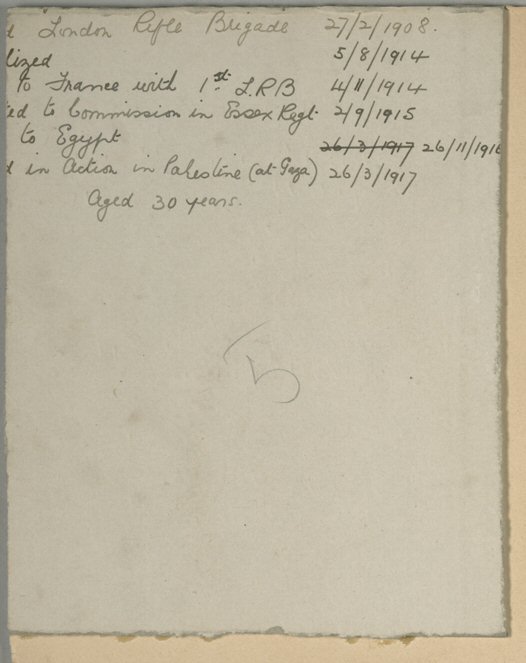 d London Rifle Brigade 27/2/1908.
lized 5/8/1914
to France with 1st L.R.B 4/11/1914
ed to Commission in Essex Regt. 2/9/1915
to Egypt 26/3/1917 26/11/1916
d in Action in Palestine (at Gaza) 26/3/1917
Aged 30 years.
5